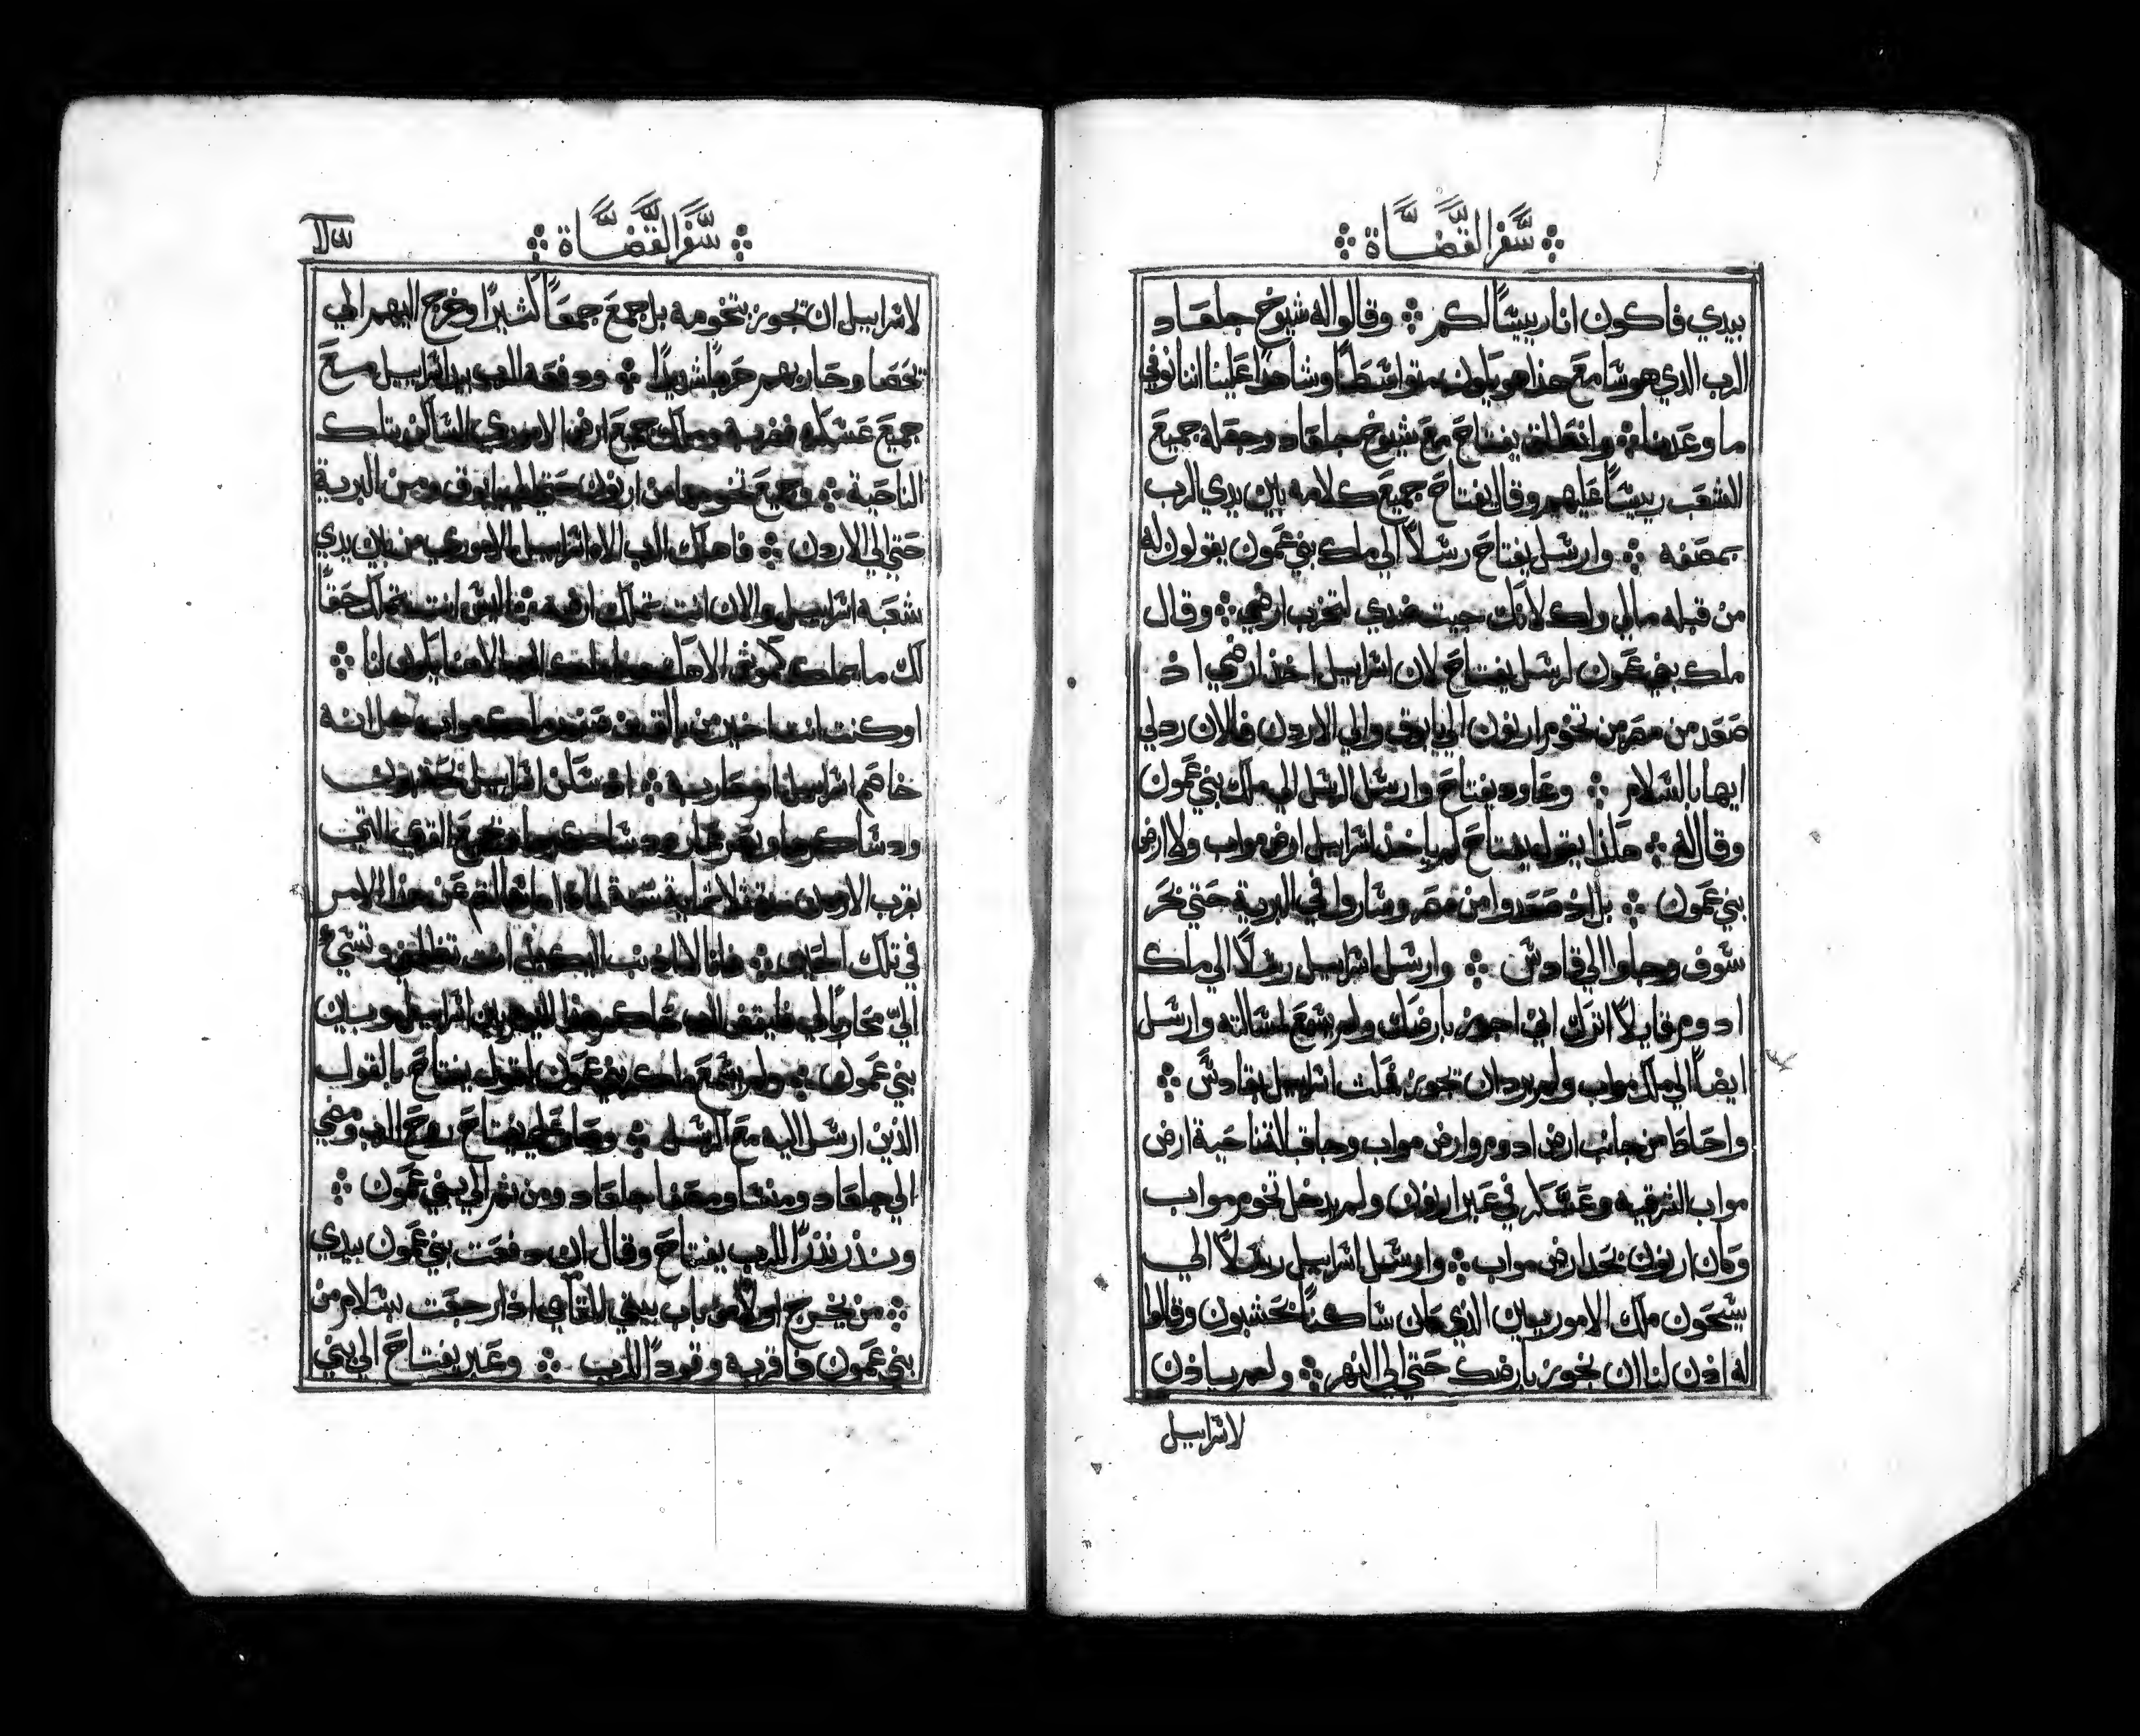 سفر القضاة
بيدي فاكون انا ريسًا لكم وقالوا له شيوخ جلعاد
الرب الذي هو سامع هذا هو يكون متواسطًا وشاهدًا علينا اننا نوفي
ما وعدناه وانطلق يفتاح مع شيوخ جلعاد وجعله جميع
الشعب رييسًا عليهم وقال يفتاح جميع كلامه بين يدي الرب
بمصفه وارسل يفتاح رسلًا الي ملك بني عمون يقولون له
من قبله مالي ولك لانك جيت ضدي لتخرب ارضي وقال
ملك بني عمون لرسل يفتاح لان اسراييل اخذ ارضي اذ
صعد من مصر من تخوم ارنون الي يابوق والي الاردن فالان ردلي
ايها بالسلام وعاود يفتاح وارسل الرسل الي ملك بني عمون
وقال له هكذا يقول يفتاح لم ياخذ اسراييل ارض مواب ولا ارض
بني عمون بل اذ صعدوا من مصر وساروا في البرية حتي بحر
سوف وجاوا الي قادس وارسل اسراييل رسلًا الي ملك
ادوم قايلًا اترك اني اجوز بارضك ولم يسمع لمسالته وارسل
ايضًا الي ملك مواب ولم يرد ان تجوز فمكت اسراييل بقادس
واحاط من جانب ارض ادوم وارض مواب وجا قبالة ناحية ارض
مواب الشرقيه وعسكر في عبر ارنون ولم يدخل تخوم مواب
وكان ارنون بحد ارض مواب وارسل اسراييل رسلًا الي
سيحون ملك الاموريين الذي كان ساكنًا بحشبون وقالوا
له اذن لنا ان نجوز بارضك حتي الي النهر ولم ياذن
لاسراييل
سفر القضاة
لاسراييل ان تجوز بتخومه بل جمع جمعًا كثيرًا وخرج اليهم الي
يحصا وحاربهم حربًا شديدًا ودفعه الرب بيد اسراييل مع
جميع عسكره فضربه وملك جميع ارض الاموري الساكن بتلك
الناحية وجميع تخومها من ارنون حتي الي يابوق ومن البرية
حتي الي الاردن فاهلك الرب الاه اسراييل الاموري من بين يدي
شعبه اسراييل والان انت تملك ارضه اليس انت تملك حقًا
لك ما يملك كموش الاهك الرب الاهنا يكون لنا
او كنت انت اخير من بالاق بن صفور ملك مواب هل انه
خاصم اسراييل او حاربه اذ سكن اسراييل بحشبون
ودساكرها وبعروعير ودساكرها وجميع القري التي
بقرب الاردن ثلاثماية سنة لماذا ما سالتم عن هذا الامر
في تلك الحين فانا لا اذنب اليك بل انت تظلمني وتسيء
اليّ محاربًا لي فليقض الرب حاكم هذا اليوم بين اسراييل وبين
بني عمون ولم يسمع ملك بني عمون لقول يفتاح بالقول
الذين ارسل اليه مع الرسل وصار علي يفتاح روح الرب ومضي
الي جلعاد ومنسا ومصفا جلعاد ومن ثم الي بني عمون
ونذر نذرًا للرب يفتاح وقال ان دفعت بني عمون بيدي
من يخرج اولًا من باب بيتي للقاي اذا رجعت بسلام من
بني عمون فاقربه وقودًا للرب وعبر يفتاح الي بني